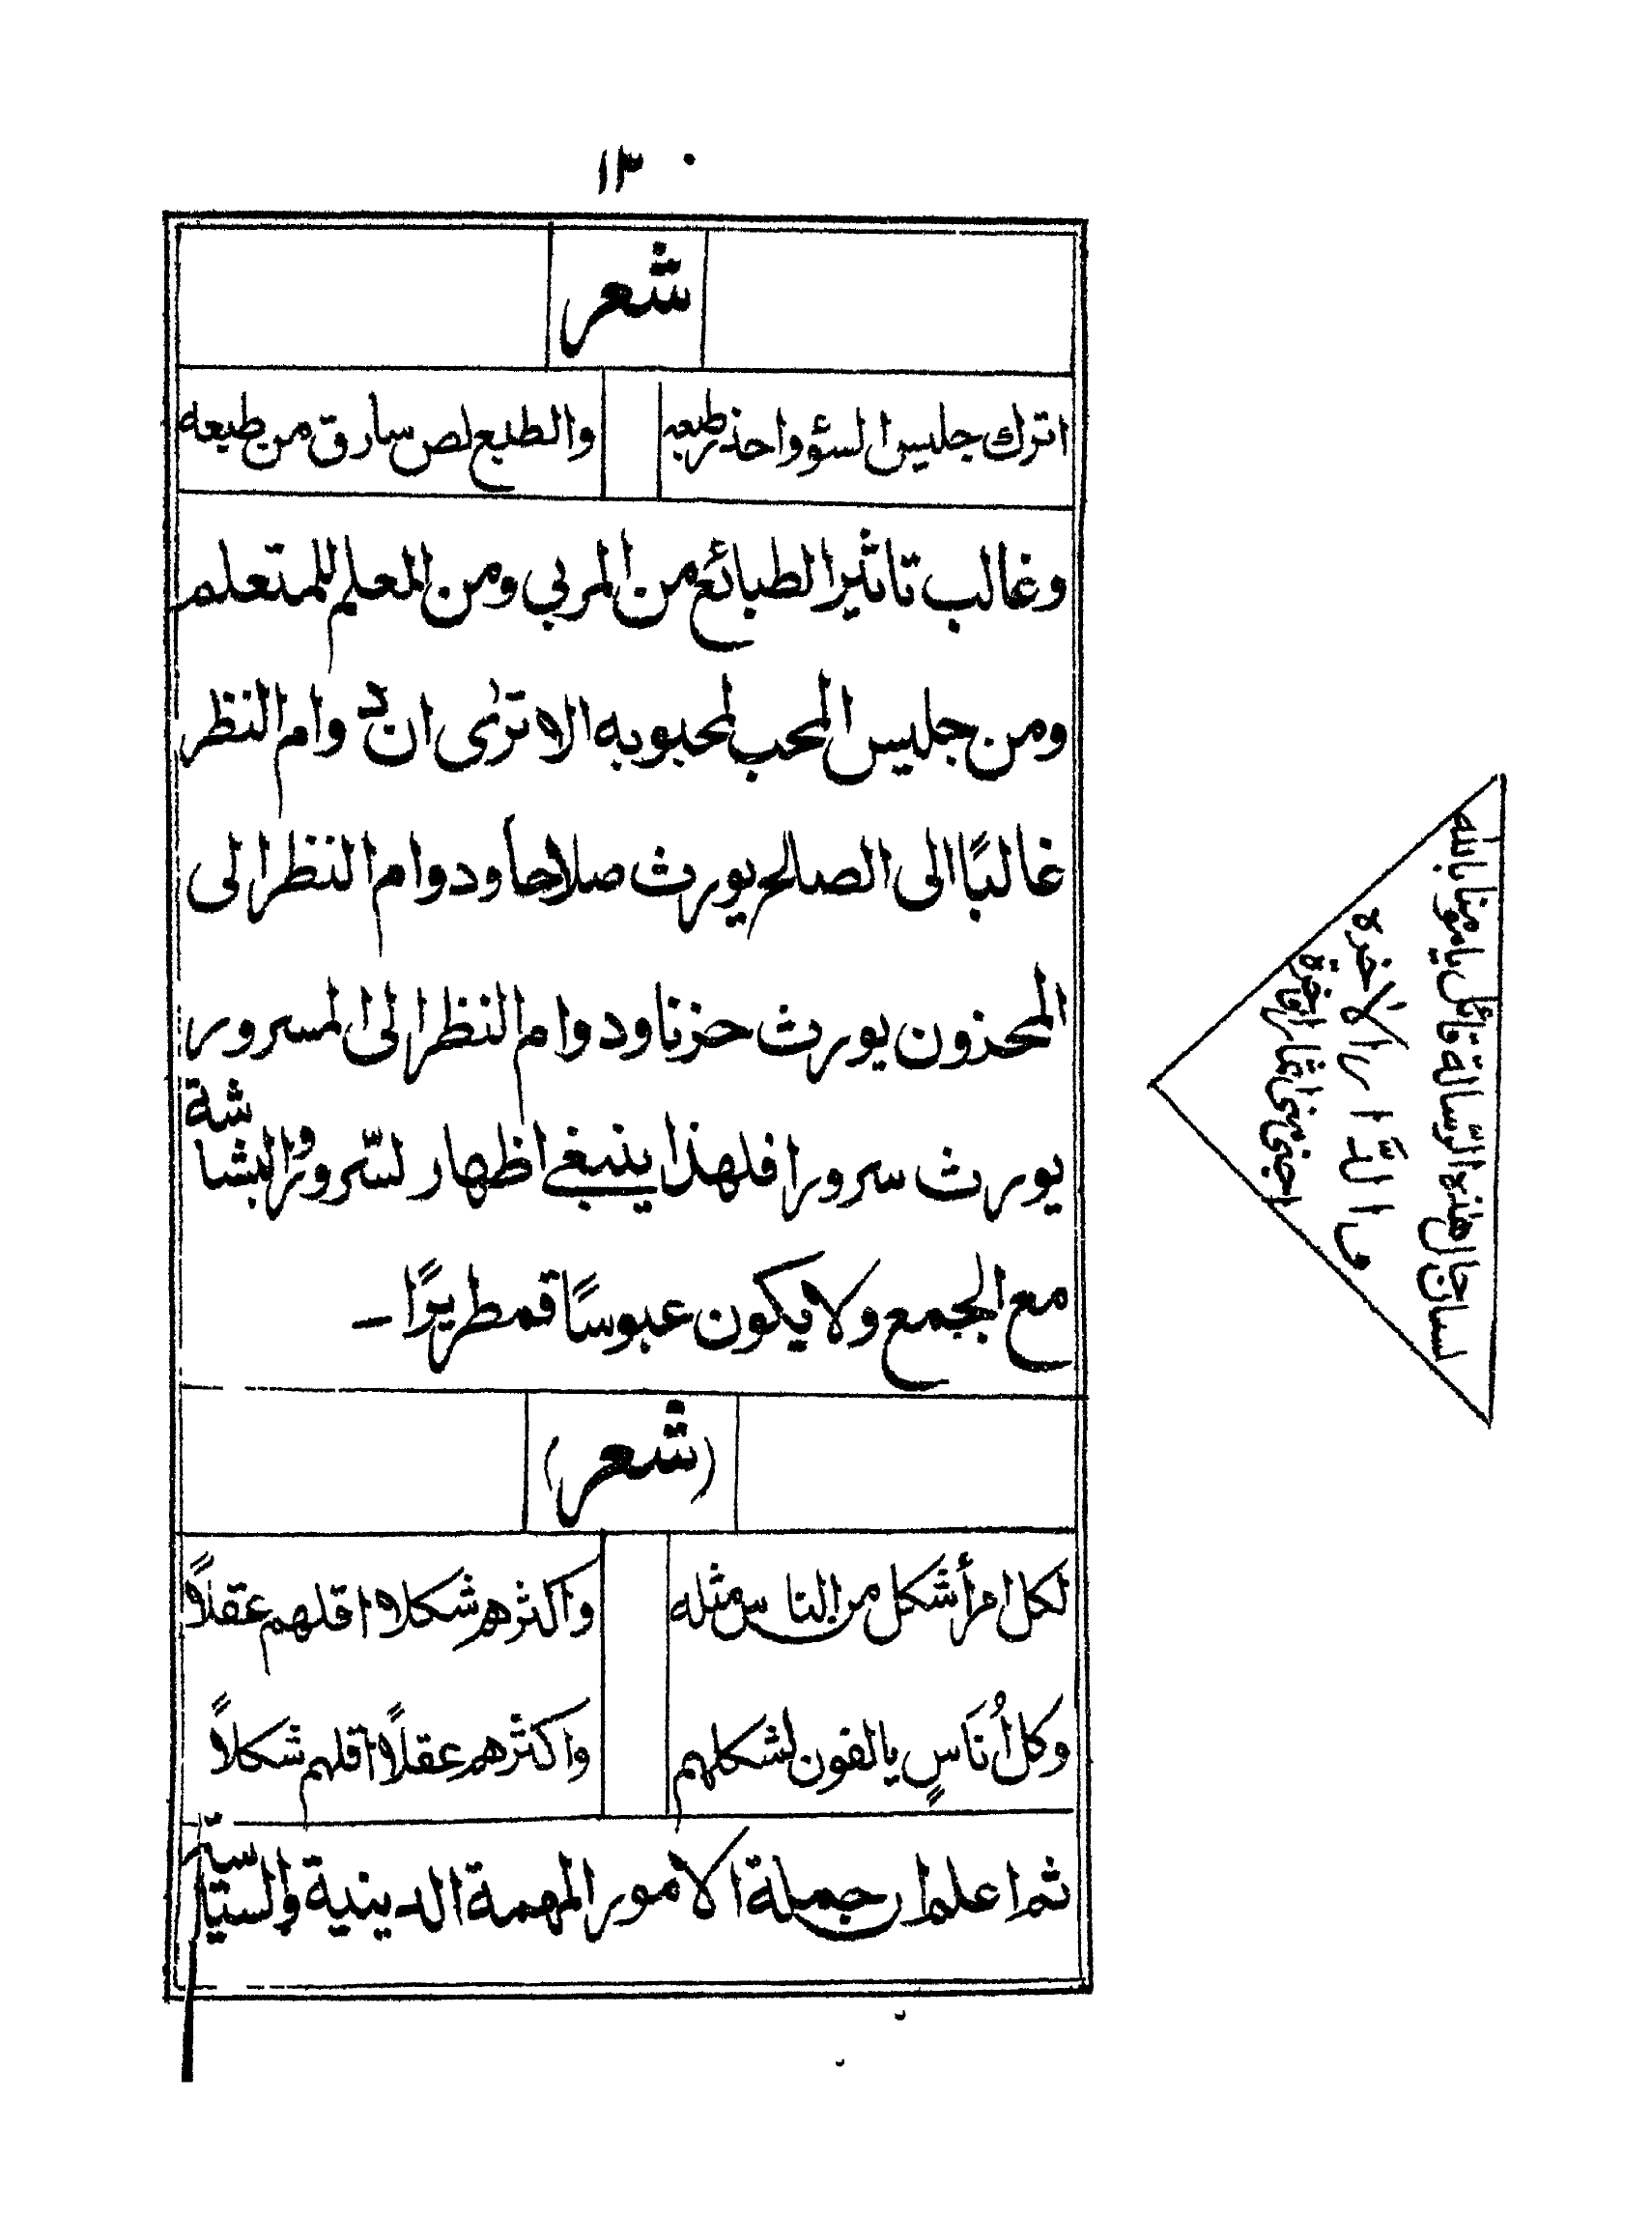 ١٣
شعر
اترك جليس السؤ واحذر طبعه والطبع لص سارق من طبعه
وغالب تاثير الطبائع من المربي ومن المعلم للمتعلم
ومن جليس المحب لمحبوبه الا ترى ان دوام النظر
غالبًا الى الصالح يورث صلاحا ودوام النظر الى
المحزون يورث حزنا ودوام النظر الى المسرور
يورث سرورا فلهذا ينبغي اظهار لسّرور والبشاشة
مع الجمع ولا يكون عبوسًا قمطريرًا ــ
(شعر)
لكل امرأ شكل من الناس مثله واكثرهم شكلا اقلهم عقلاً
وكل اُنَاسٍ يالفون لشكلهم واكثرهم عقلاً اقلهم شكلاً
ثم اعلم ان جملة الامور المهمة الدينية والستيّر
لسان حال هذه الرّسالة قائل يا مؤمنا بالله
والدّار الاخره
اجنى ثمار فاخرة